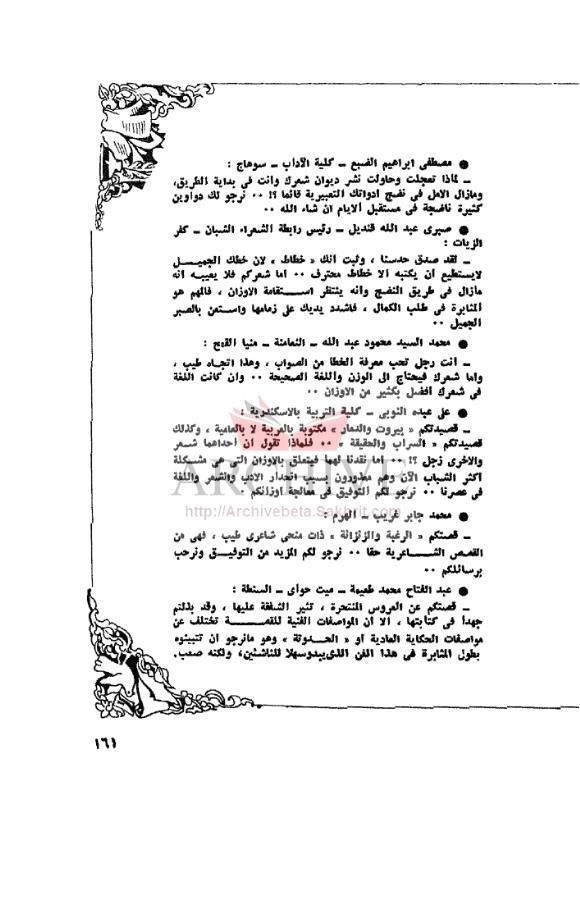 ● مصطفى ابراهيم الضبع ــ كلية الآداب ــ سوهاج :
ــ لماذا تعجلت وحاولت نشر ديوان شعرك وانت فى بداية الطريق،
ومازال الامل فى نضج ادواتك التعبيرية قائما ؟! ٠٠ نرجو لك دواوين
كثيرة ناضجة فى مستقبل الأيام ان شاء الله ٠٠
● صبرى عبد الله قنديل ــ رئيس رابطة الشعراء الشبان ــ كفر
الزيات :
ــ لقد صدق حدسنا ، وثبت انك « خطاط » لان خطك الجميل
لايستطيع ان يكتبه الا خطاط محترف ٠٠ اما شعركم فلا يعيبه انه
مازال فى طريق النضج وانه ينتظر استقامة الاوزان ، فالمهم هو
المثابرة فى طلب الكمال ، فاشدد يديك على زمامها واستعن بالصبر
الجميل ٠٠
● محمد السيد محمود عبد الله ــ النعامنة ــ منيا القمح :
ــ انت رجل تحب معرفة الخطا من الصواب ، وهذا اتجاه طيب ،
واما شعرك فيحتاج الى الوزن واللغة الصحيحة ٠٠ وان كانت اللغة
فى شعرك افضل بكثير من الاوزان ٠٠
● على عبده النوبى ــ كلية التربية بالاسكندرية :
ــ قصيدتكم « بيروت والدمار » مكتوبة بالعربية لا بالعامية ، وكذلك
قصيدتكم « السراب والحقيقة » ٠٠ فلماذا تقول ان احداهما شعر
والاخرى زجل ؟! ٠٠ اما نقدنا لهما فيتعلق بالاوزان التى هى مشكلة
اكثر الشباب الآن وهم معذورون بسبب انحدار الادب والشعر واللغة
فى عصرنا ٠٠ نرجو لكم التوفيق فى معالجة اوزانكم ٠
ARCHIVE
http://Archivebeta.Sakhrit.com
● محمد جابر غريب ــ الهرم :
ــ قصتكم « الرغبة والزنزانة » ذات منحى شاعرى طيب ، فهى من
القصص الشاعرية حقا ٠٠ نرجو لكم المزيد من التوفيق ونرحب
برسائلكم ٠٠
● عبد الفتاح محمد طعيمة ــ ميت حواى ــ السنطة :
ــ قصتكم عن العروس المنتحرة ، تثير الشفقة عليها ، وقد بذلتم
جهدا فى كتابتها ، الا ان المواصفات الفنية للقصة تختلف عن
مواصفات الحكاية العادية او « الحدوتة » وهو مانرجو ان تتبينوه
بطول المثابرة فى هذا الفن الذى يبدو سهلا للناشئين، ولكنه صعب.
١٦١